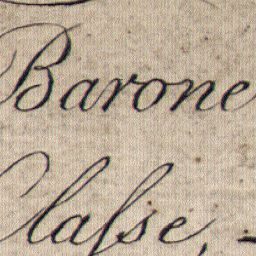 Barone
Claſse, -